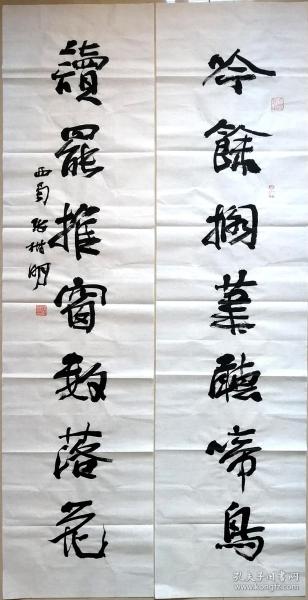 吟餘搁筆聽啼鳥
讀罷推窗數落花
西蜀張樹明
孔夫子旧书网